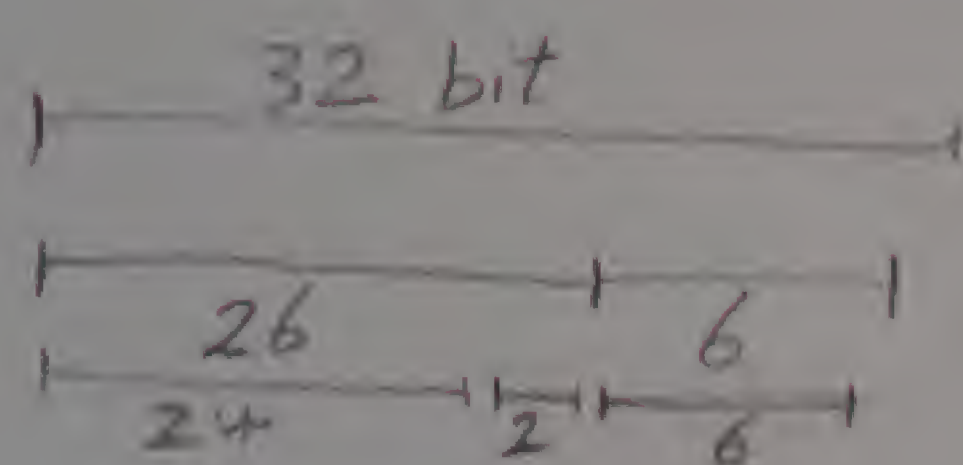 32 bit
26 6
24 2 6